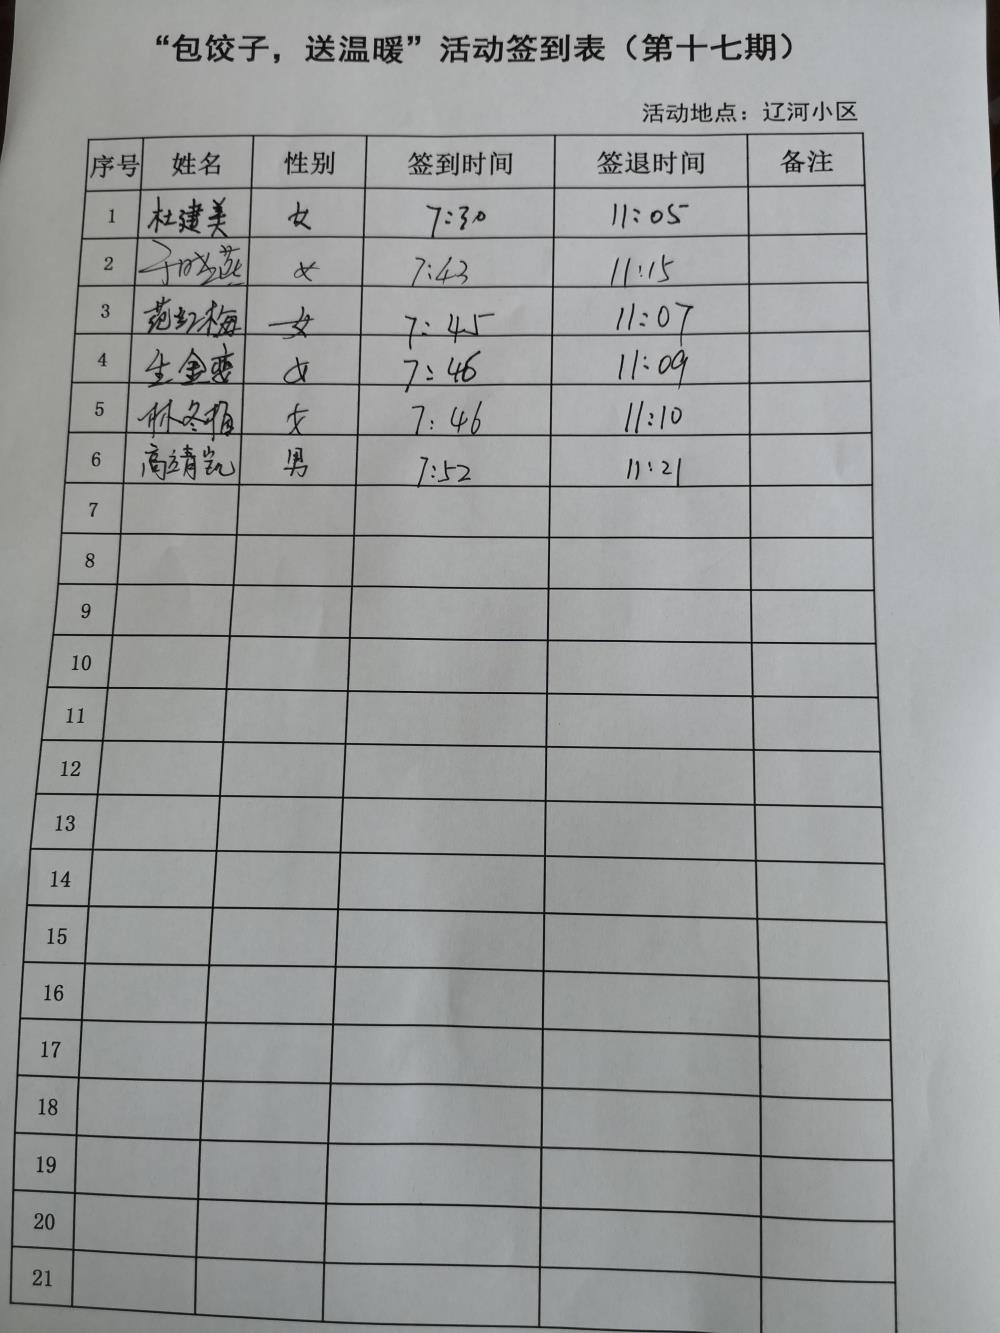 “包饺子，送温暖”活动签到表（第十七期）
活动地点：辽河小区
序号 姓名 性别 签到时间 签退时间 备注
1 杜建美 女 7:30 11:05
2 于晓燕 女 7:43 11:15
3 范红梅 女 7:45 11:07
4 生金恋 女 7:46 11:09
5 林冬梅 女 7:46 11:10
6 高靖凯 男 7:52 11:21
7
8
9
10
11
12
13
14
15
16
17
18
19
20
21